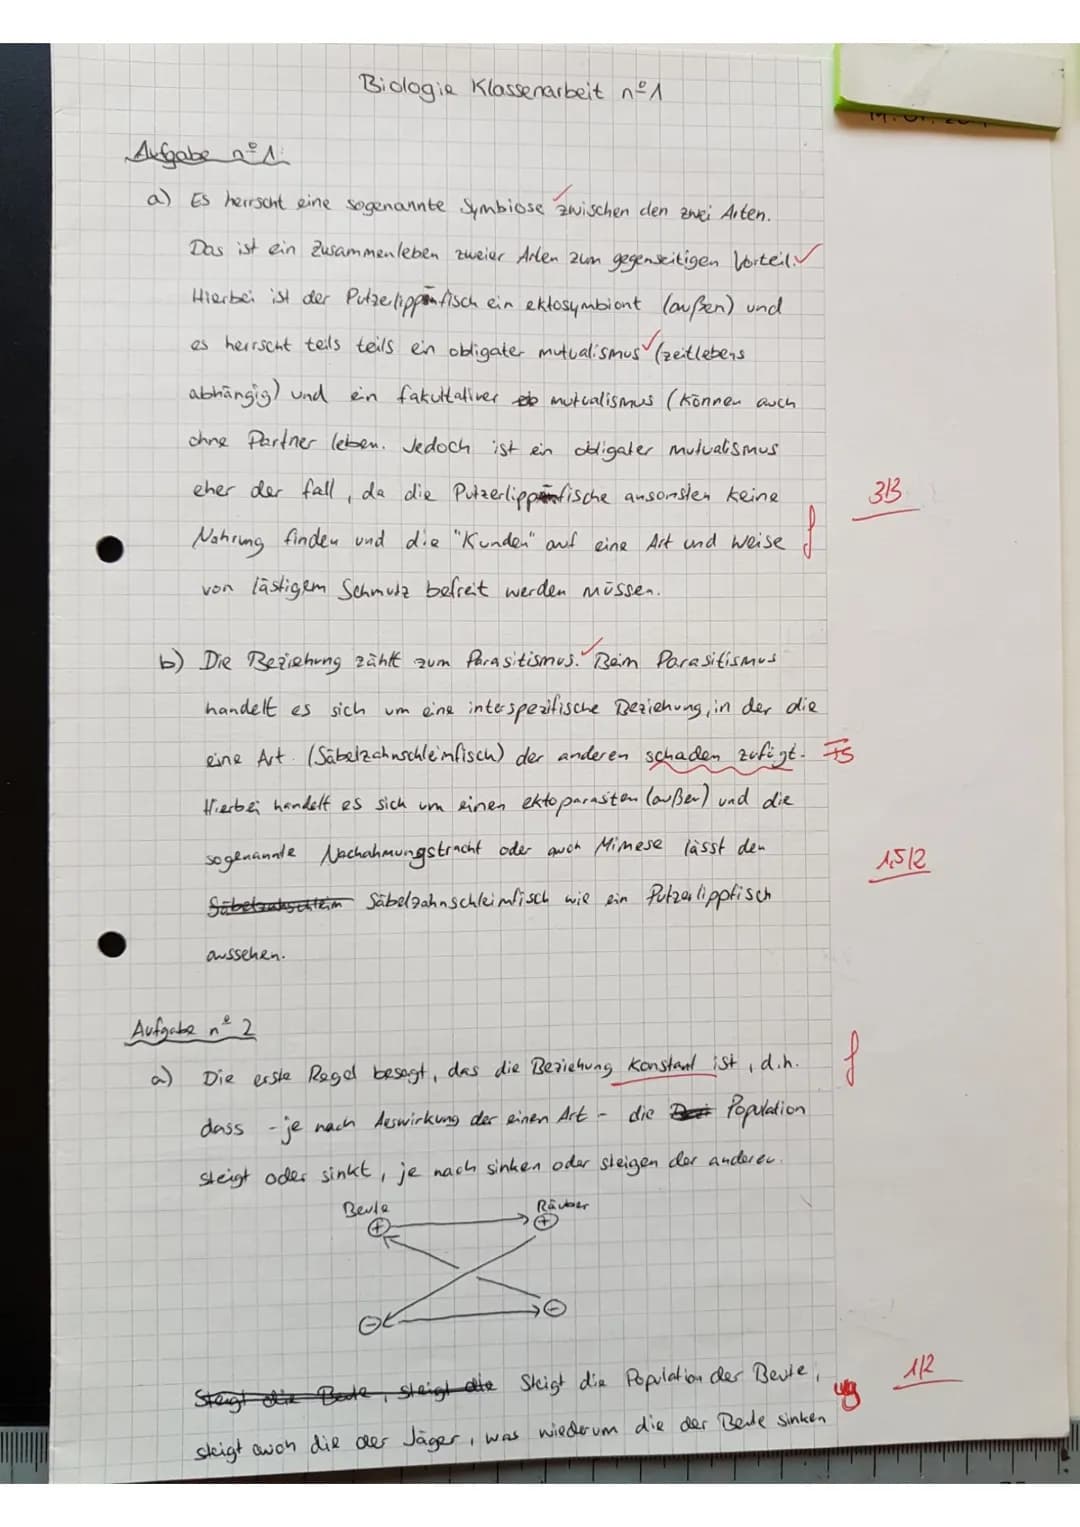 Biologie Klassenarbeit nº1
Aufgabe nº1:
a) Es herrscht eine sogenannte Symbiose zwischen den zwei Arten.
Das ist ein Zusammenleben zweier Arten zum gegenseitigen Vorteil.
Hierbei ist der Putzerlippenfisch ein ektosymbiont (außen) und
es herrscht teils teils ein obligater mutualismus (zeitlebens
abhängig) und ein fakultativer mutualismus (können auch
ohne Partner leben. Jedoch ist ein obligater mutualismus
eher der fall, da die Putzerlippenfische ansonsten keine
3/3
Nahrung finden und die "Kunden" auf eine Art und weise f
von lästigem Schmutz befreit werden müssen.
b) Die Beziehung zählt zum Parasitismus. Beim Parasitismus
handelt es sich um eine interspezifische Beziehung, in der die
eine Art (Säbelzahnschleimfisch) der anderen schaden zufügt. Fs
Hierbei handelt es sich um einen ektoparasiten (außen) und die
sogenannte Nachahmungstracht oder auch Mimese lässt den
1,5/2
Säbelzahnschleim Säbelzahnschleimfisch wie ein Putzerlippfisch
aussehen.
Aufgabe nº 2
a) Die erste Regel besagt, das die Beziehung konstant ist, d.h. f
dass - je nach Auswirkung der einen Art - die Population
steigt oder sinkt, je nach sinken oder steigen der anderen.
Beute Räuber
+ +
- -
1/2
Steigt die Beute, steigt die Steigt die Population der Beute,
steigt auch die der Jäger, was wiederum die der Beute sinken